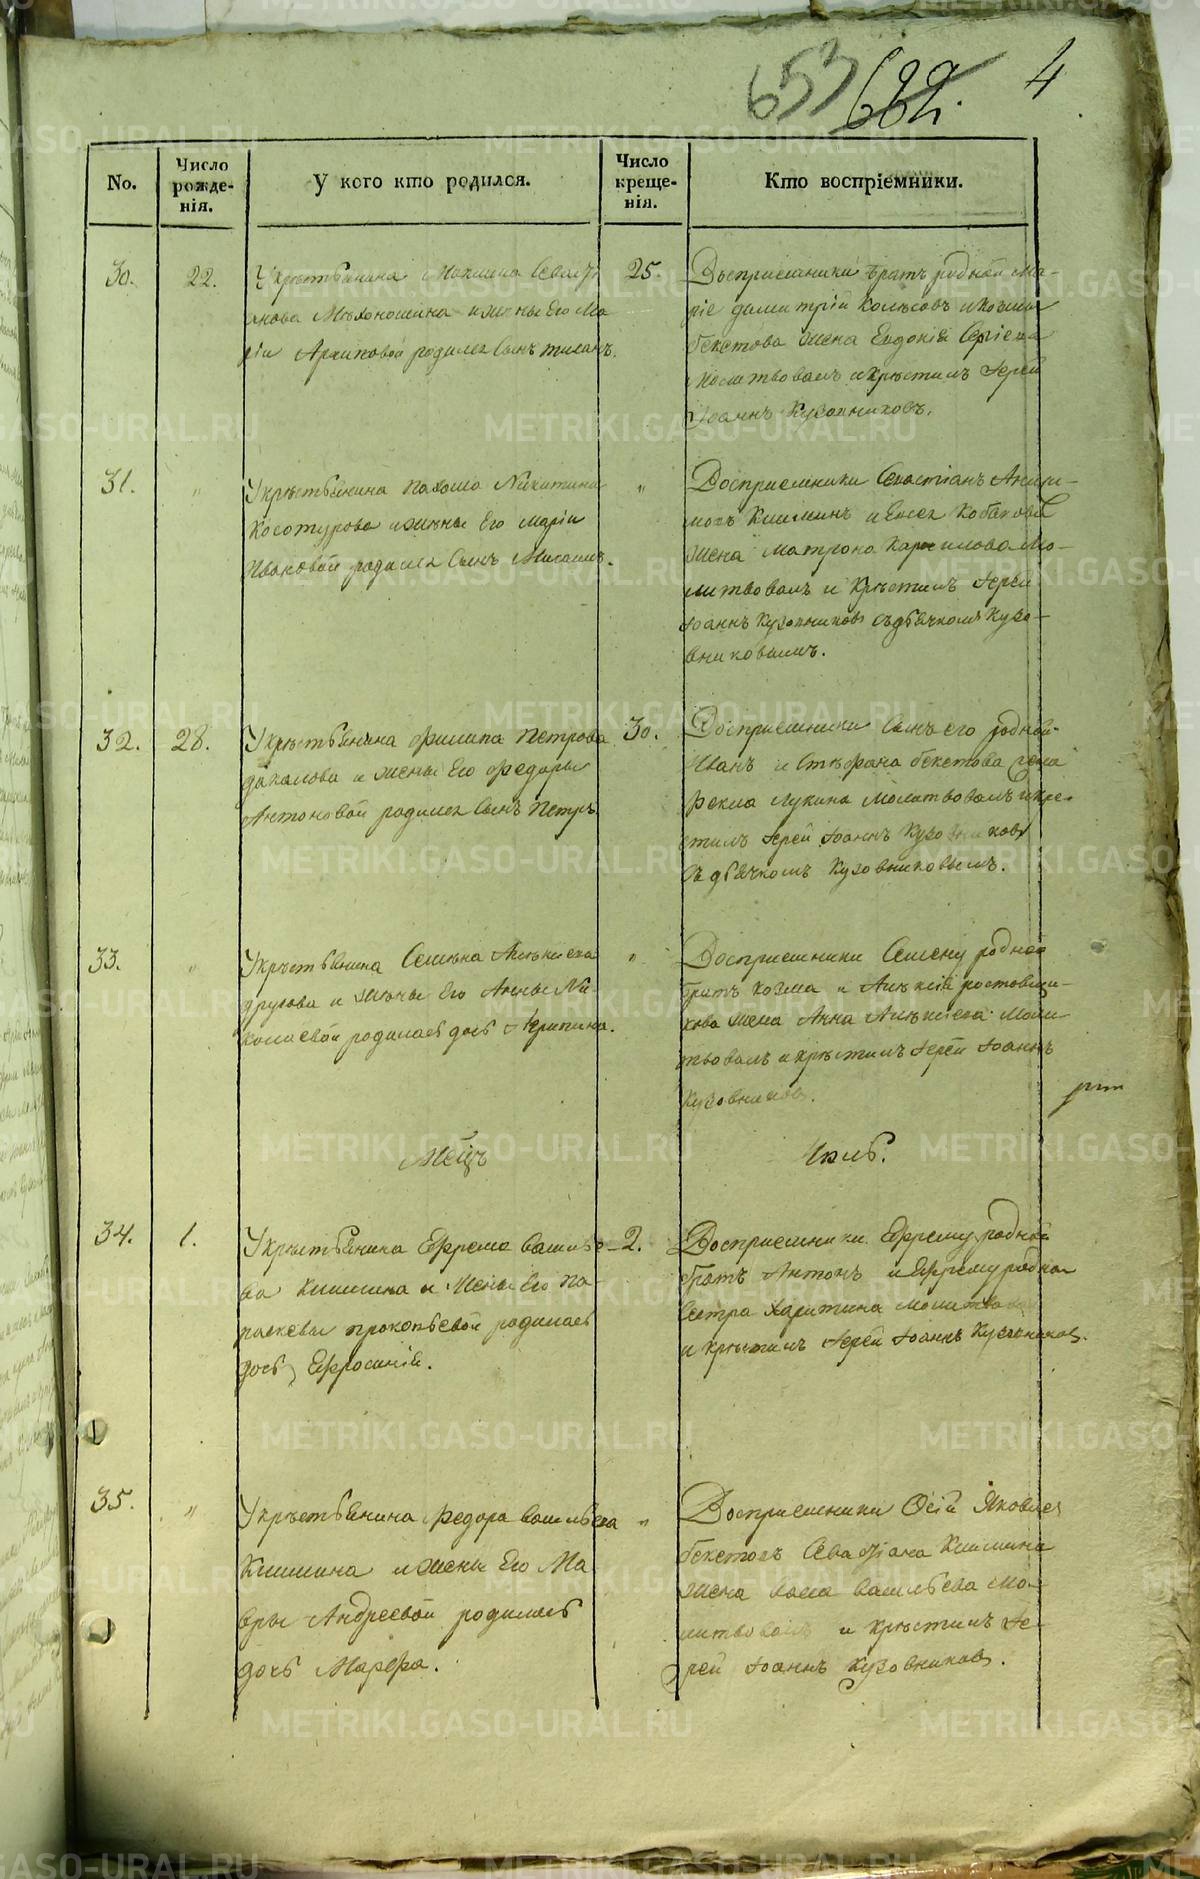 653 4
No.
Число рожде- нія.
У кого кто родился.
Число креще- нія.
Кто воспріемники.
30.
22.
Укрѣстьянина
анова Мѣхоношина ижены Его Ма
ріи Архиповой родился Сынъ
25.
Восприемники братъ родной Ма-
ріе димитрій Колѣсовъ икозмы
бекетова жена Евдокія Сергіева
Молитвовалъ икрѣстилъ Іерей
Іоаннъ Кузовниковъ.
31.
"
Укрѣстьянина Пахома Никитина
Косотурова ижены Его Маріи
Ивановой родился Сынъ
"
Восприемники Севастіанъ
Кишминъ и
жена Матрона Мо-
литвовалъ и Крѣстилъ Іерей
Іоаннъ Кузовниковъ съдьячкомъ Кузо-
вниковымъ.
32.
28.
Укрѣстьянина Филипа Петрова
и жены Его Федоры
Антоновой родился Сынъ Петръ
30.
Восприемники Сынъ его родной
Иванъ и Стефана бекетова жена
Фекла Лукина Молитвовалъ икре-
стилъ Іерей Іоаннъ Кузовниковъ
Съ дьячкомъ Кузовниковымъ.
33.
"
Укрѣстьянина Семена Алѣксеева
другова и жены Его Анны Ни-
колаевой родилась дочь Агрипина.
"
Восприемники Семену родной
братъ Козма и Алѣксія ростовщи-
кова жена Анна Алѣксеева Моли
твовалъ икрѣстилъ Іерей Іоаннъ
Кузовниковъ.
Іюль.
34.
1.
Укрѣстьянина Ефрема Василье
ва Кишмина и Жены Его Па-
расковы прокопьевой родилась
дочь Ефросинія.
2.
Восприемники Ефрему родной
братъ Антонъ и Ефрему родная
Сестра Харитина Молитвовалъ
и крѣстилъ Іерей Іоаннъ Кузовниковъ.
35.
"
Укрѣстьянина Федора Васильева
Кишмина и жены Его Ма-
вры Андреевой родилась
дочь Марфа.
"
Восприемники Осій Яковлев
бекетовъ Кишмина
жена Васильева Мо-
литвовалъ и крѣстилъ Іе-
рей Іоаннъ Кузовниковъ.
METRIKI.GASO-URAL.RU